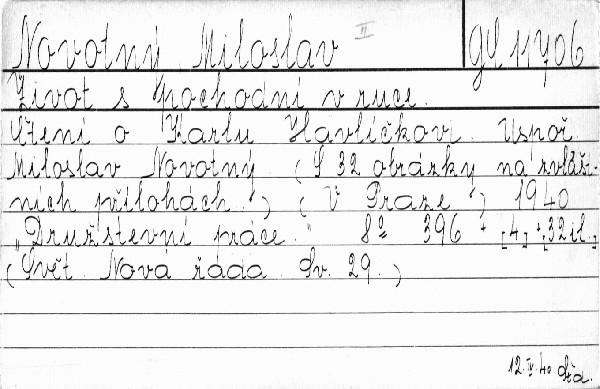 Novotný Miloslav II gL 11706
Život s pochodní v ruce.
Čtení o Karlu Havlíčkovi. Uspoř.
Miloslav Novotný (S 32 obrázky na zvlášt-
ních přílohách.) (V Praze) 1940
"Družstevní práce." 8° 396 + [4] + [32il.]
(Svět. Nová řada. Sv. 29.)
12.IV.40